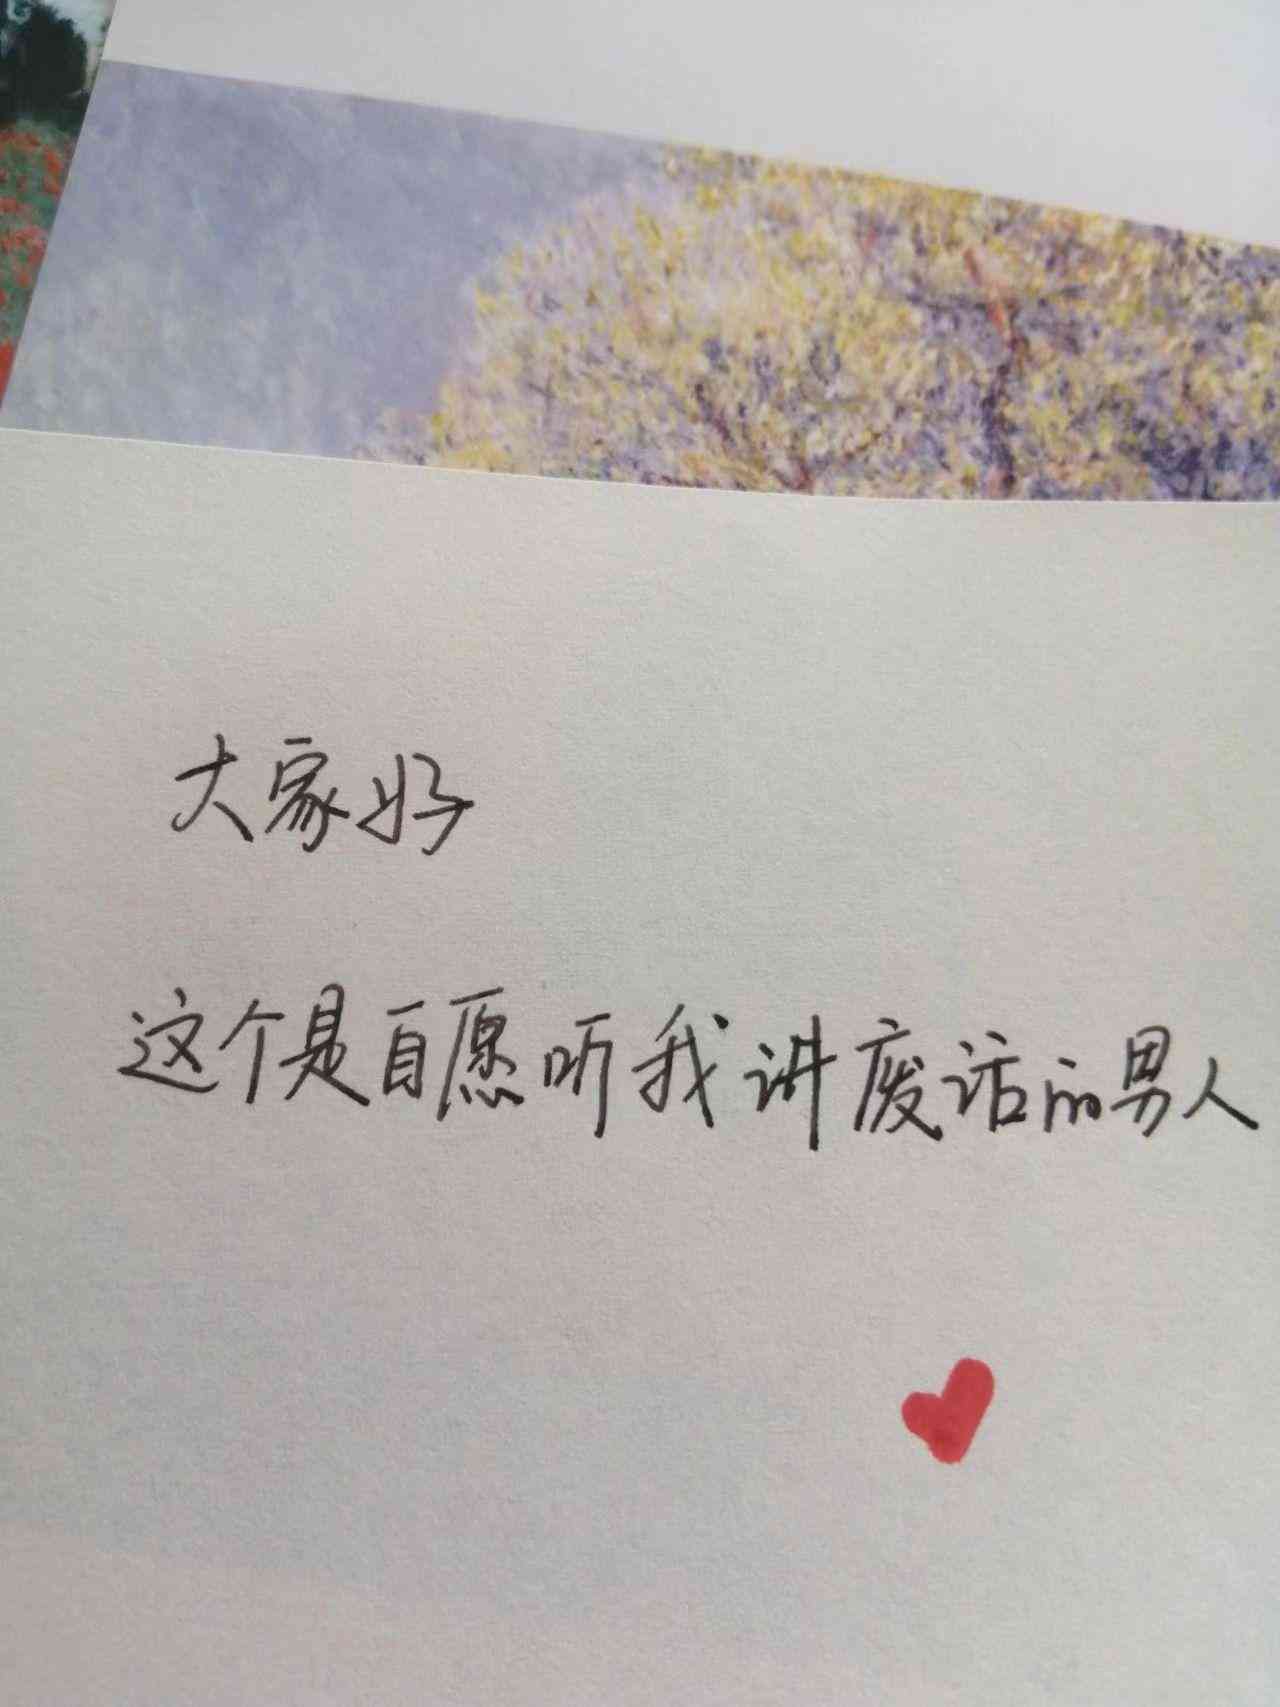 大家好
这个是自愿听我讲废话的男人